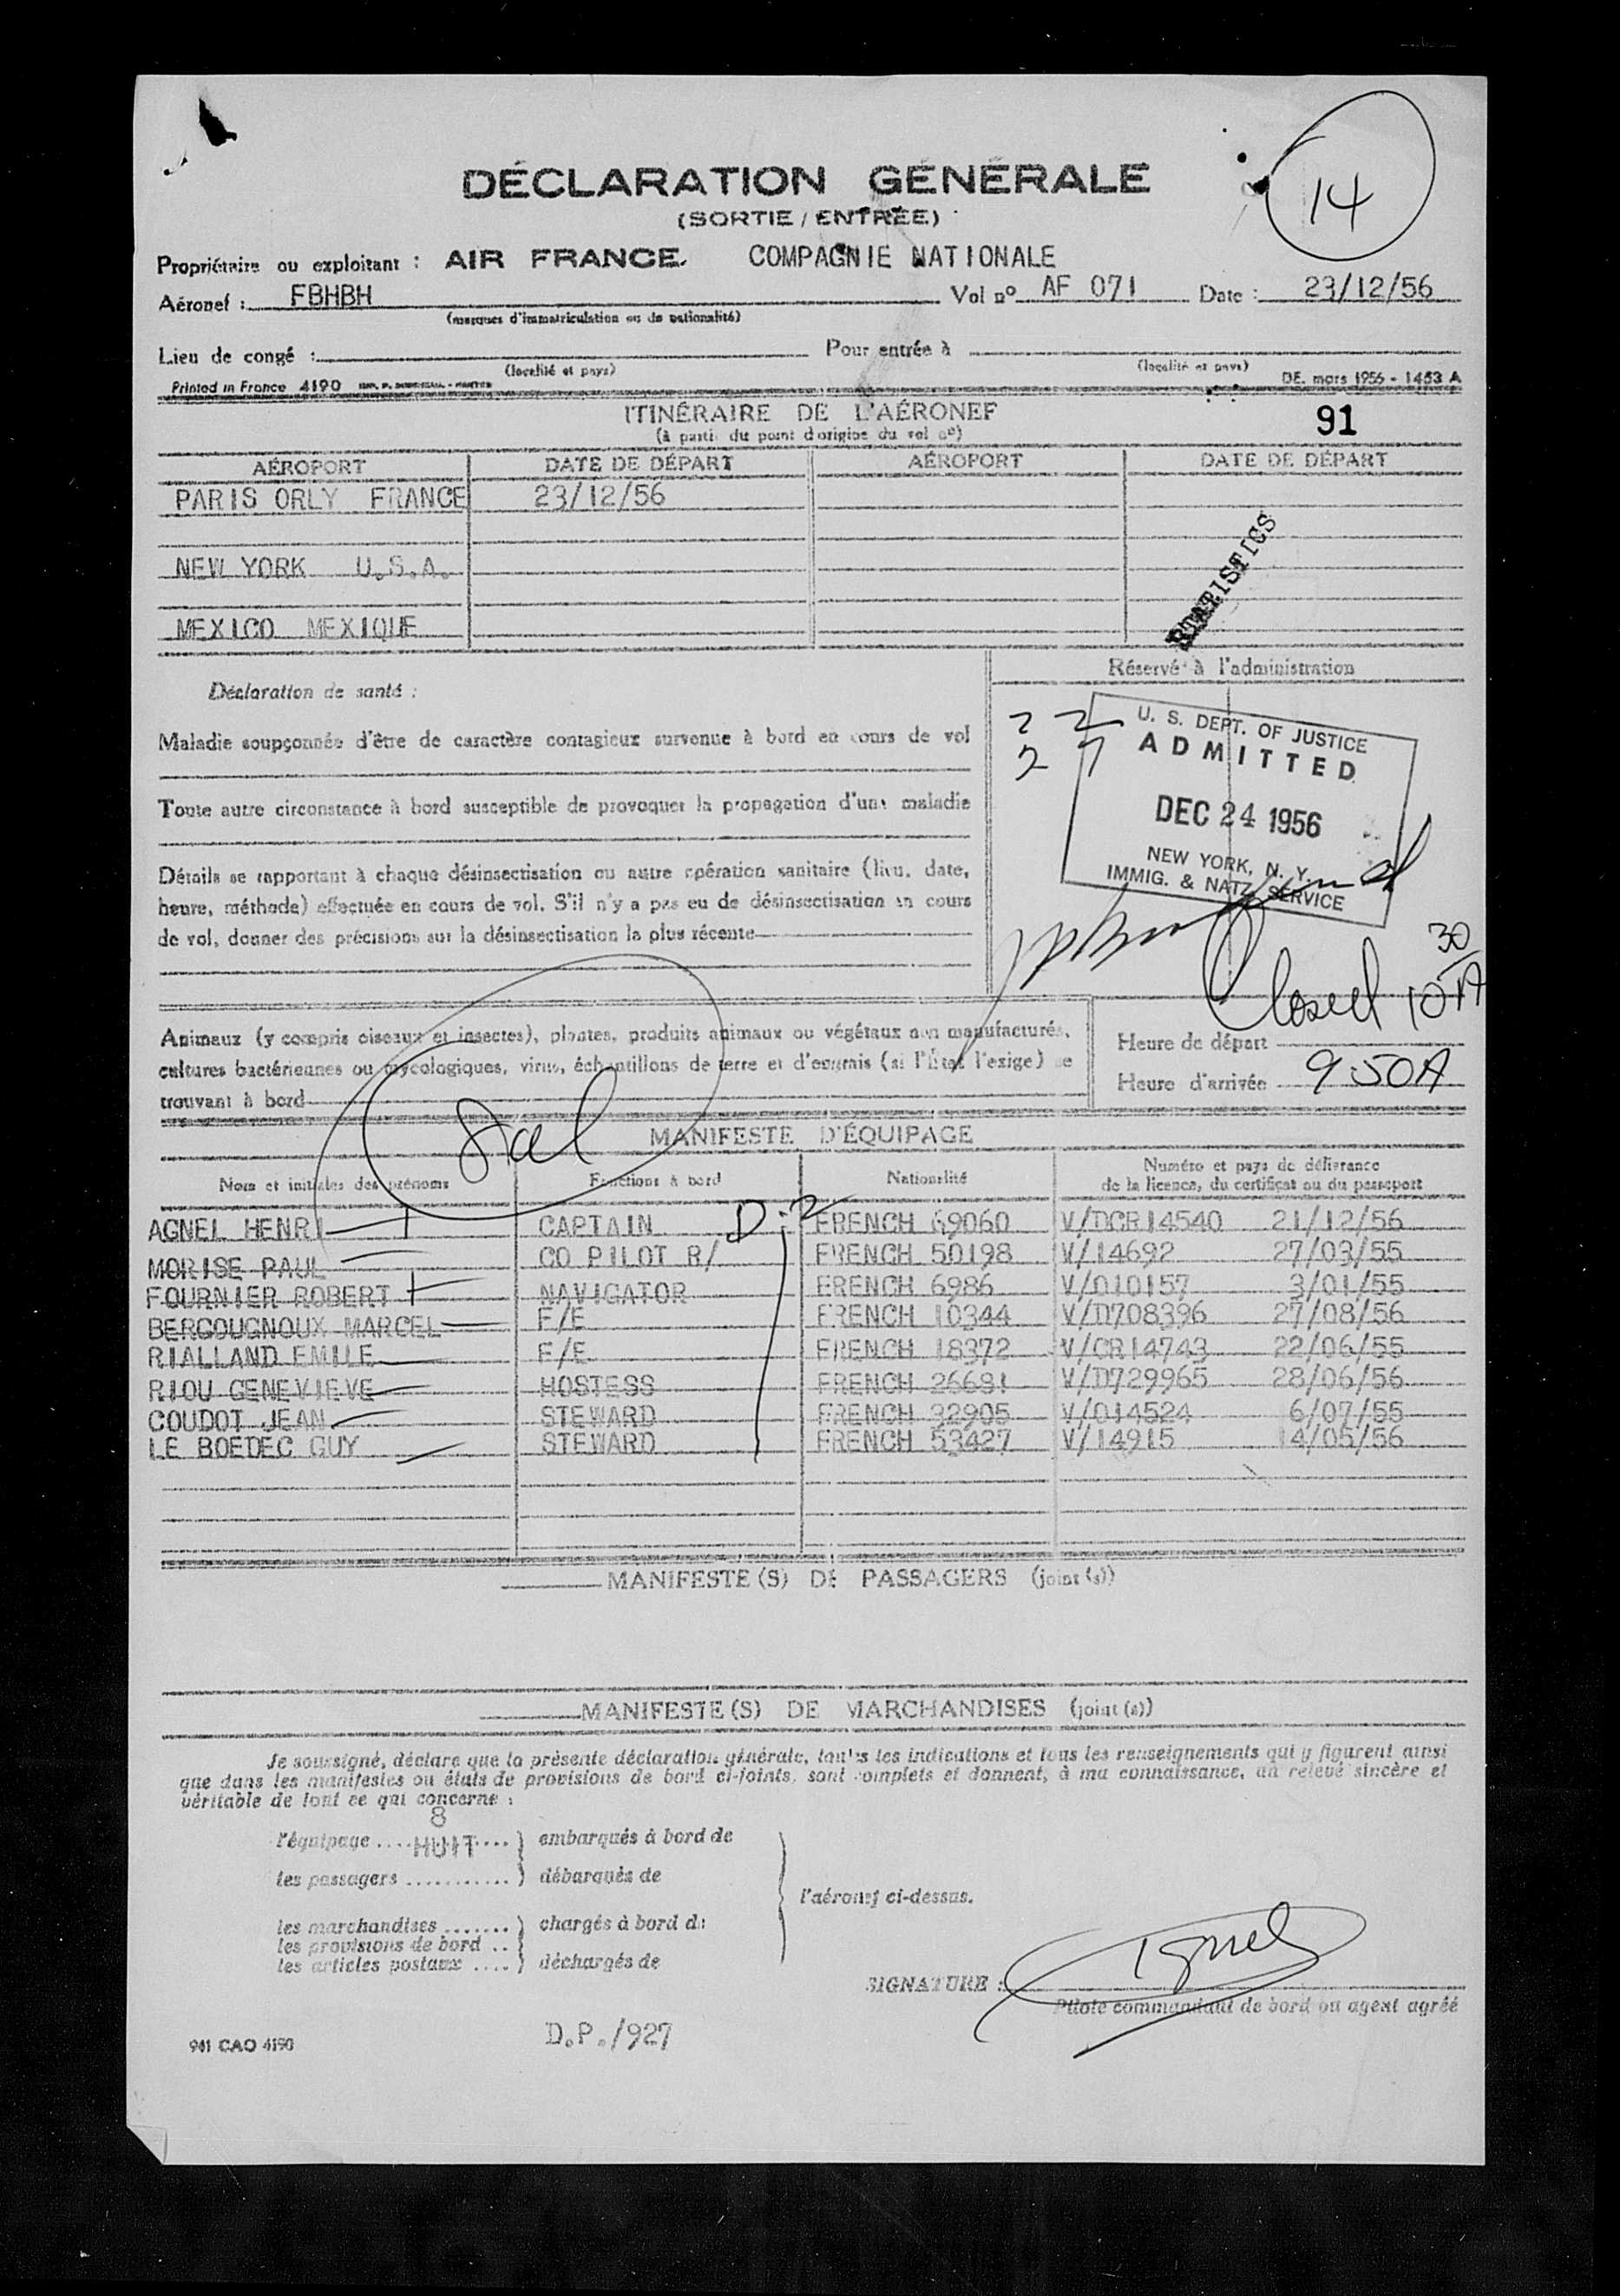 14
DÉCLARATION GÉNÉRALE
(SORTIE / ENTRÉE)
Propriétaire ou exploitant : AIR FRANCE. COMPAGNIE NATIONALE
Aéronef : FBHBH Vol nº AF 071 Date : 23/12/56
(marques d'immatriculation ou de nationalité)
Lieu de congé : Pour entrée à
(localité et pays) (localité et pays)
Printed in France 4190 DE. mars 1956 - 1453 A
ITINÉRAIRE DE L'AÉRONEF 91
(à partir du point d'origine du vol nº)
AÉROPORT DATE DE DÉPART AÉROPORT DATE DE DÉPART
PARIS ORLY FRANCE 23/12/56
NEW YORK U.S.A.
MEXICO MEXIQUE
STATISTICS
Réservé à l'administration
Déclaration de santé :
Maladie soupçonnée d'être de caractère contagieux survenue à bord en cours de vol
Toute autre circonstance à bord susceptible de provoquer la propagation d'une maladie
Détails se rapportant à chaque désinsectisation ou autre opération sanitaire (lieu, date,
heure, méthode) effectuée en cours de vol. S'il n'y a pas eu de désinsectisation en cours
de vol, donner des précisions sur la désinsectisation la plus récente
2 2
2 7
U. S. DEPT. OF JUSTICE
ADMITTED
DEC 24 1956
NEW YORK, N. Y.
IMMIG. & NATZ. SERVICE
Closed 10 30 A
Animaux (y compris oiseaux et insectes), plantes, produits animaux ou végétaux non manufacturés,
cultures bactériennes ou mycologiques, virus, échantillons de terre et d'engrais (si l'État l'exige) se
trouvant à bord
Heure de départ
Heure d'arrivée 9:50A
MANIFESTE D'ÉQUIPAGE
Nom et initiales des prénoms Fonctions à bord Nationalité Numéro et pays de délivrance
de la licence, du certificat ou du passeport
AGNEL HENRI CAPTAIN D-2 FRENCH 69060 V/DCR14540 21/12/56
MORISE PAUL CO PILOT R/ FRENCH 50198 V/14692 27/03/55
FOURNIER ROBERT NAVIGATOR FRENCH 6986 V/010157 3/01/55
BERGOUGNOUX MARCEL F/E FRENCH 10344 V/D708396 27/08/56
RIALLAND EMILE F/E FRENCH 18372 V/CR14743 22/06/55
RIOU GENEVIEVE HOSTESS FRENCH 26681 V/D729965 28/06/56
COUDOT JEAN STEWARD FRENCH 32905 V/014524 6/07/55
LE BOEDEC GUY STEWARD FRENCH 53427 V/14915 14/05/56
MANIFESTE(S) DE PASSAGERS (joint(s))
MANIFESTE(S) DE MARCHANDISES (joint(s))
Je soussigné, déclare que la présente déclaration générale, toutes les indications et tous les renseignements qui y figurent ainsi
que dans les manifestes ou états de provisions de bord ci-joints, sont complets et donnent, à ma connaissance, un relevé sincère et
véritable de tout ce qui concerne :
8
l'équipage .... HUIT .... ) embarqués à bord de
les passagers ........... ) débarqués de
l'aéronef ci-dessus.
les marchandises ....... ) chargés à bord de
les provisions de bord ..
les articles postaux .... ) déchargés de
SIGNATURE : Agnel
Pilote commandant de bord ou agent agréé
941 CAO 4190 D.P./927